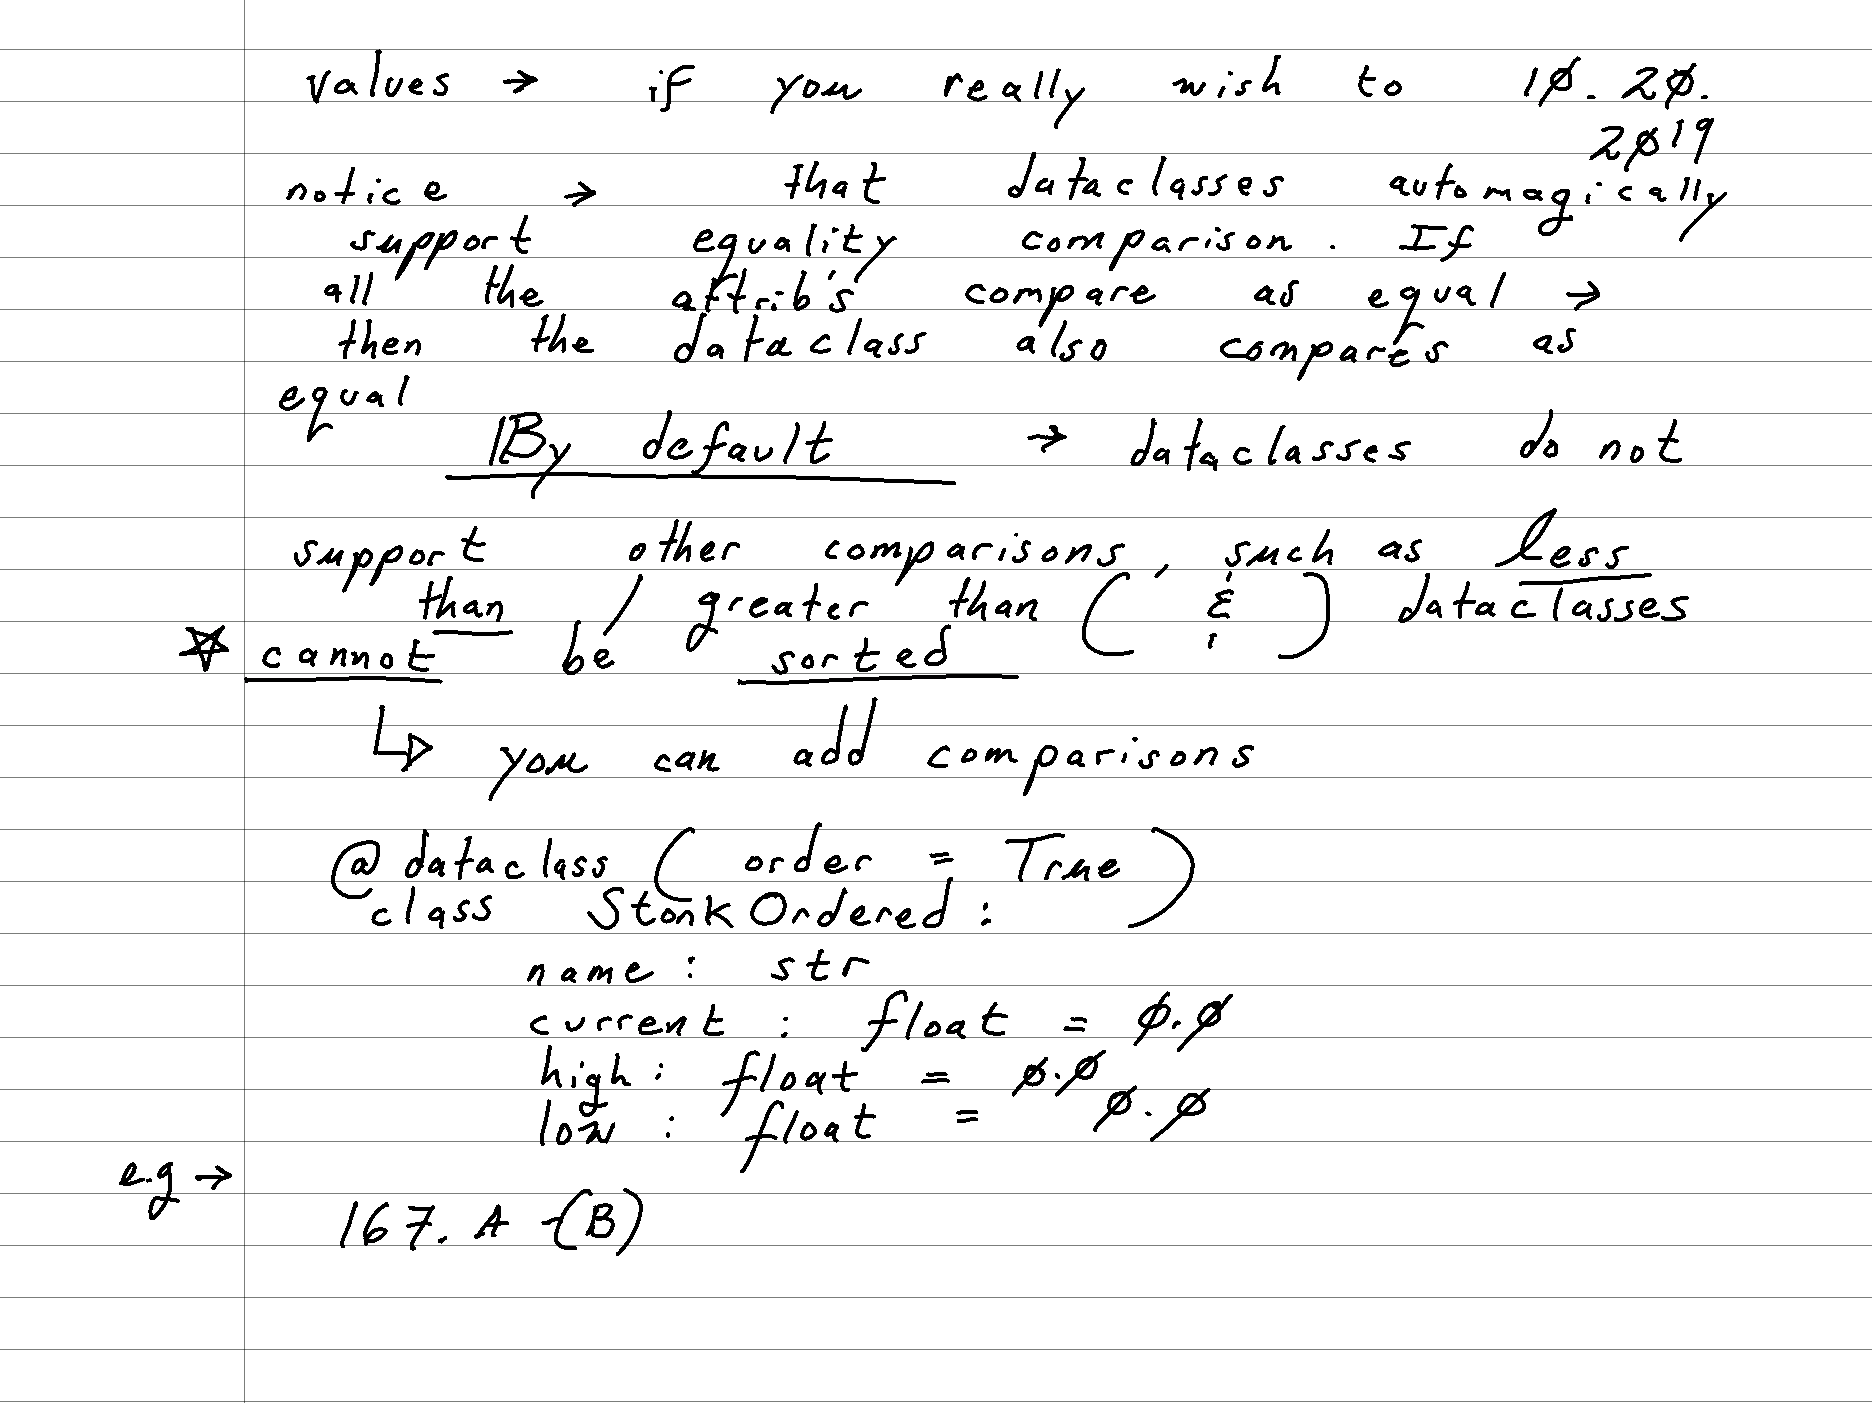 values → if you really wish to 10. 20.
2019
notice → that dataclasses automagically
support equality comparison. If
all the attrib's compare as equal →
then the dataclass also compares as
equal
By default → dataclasses do not
support other comparisons, such as less
than / greater than ( & ) dataclasses
☆ cannot be sorted
↳ you can add comparisons
@dataclass (order = True)
class StonkOrdered:
name: str
current: float = 0.0
high: float = 0.0
low: float = 0.0
e.g →
167. A -(B)